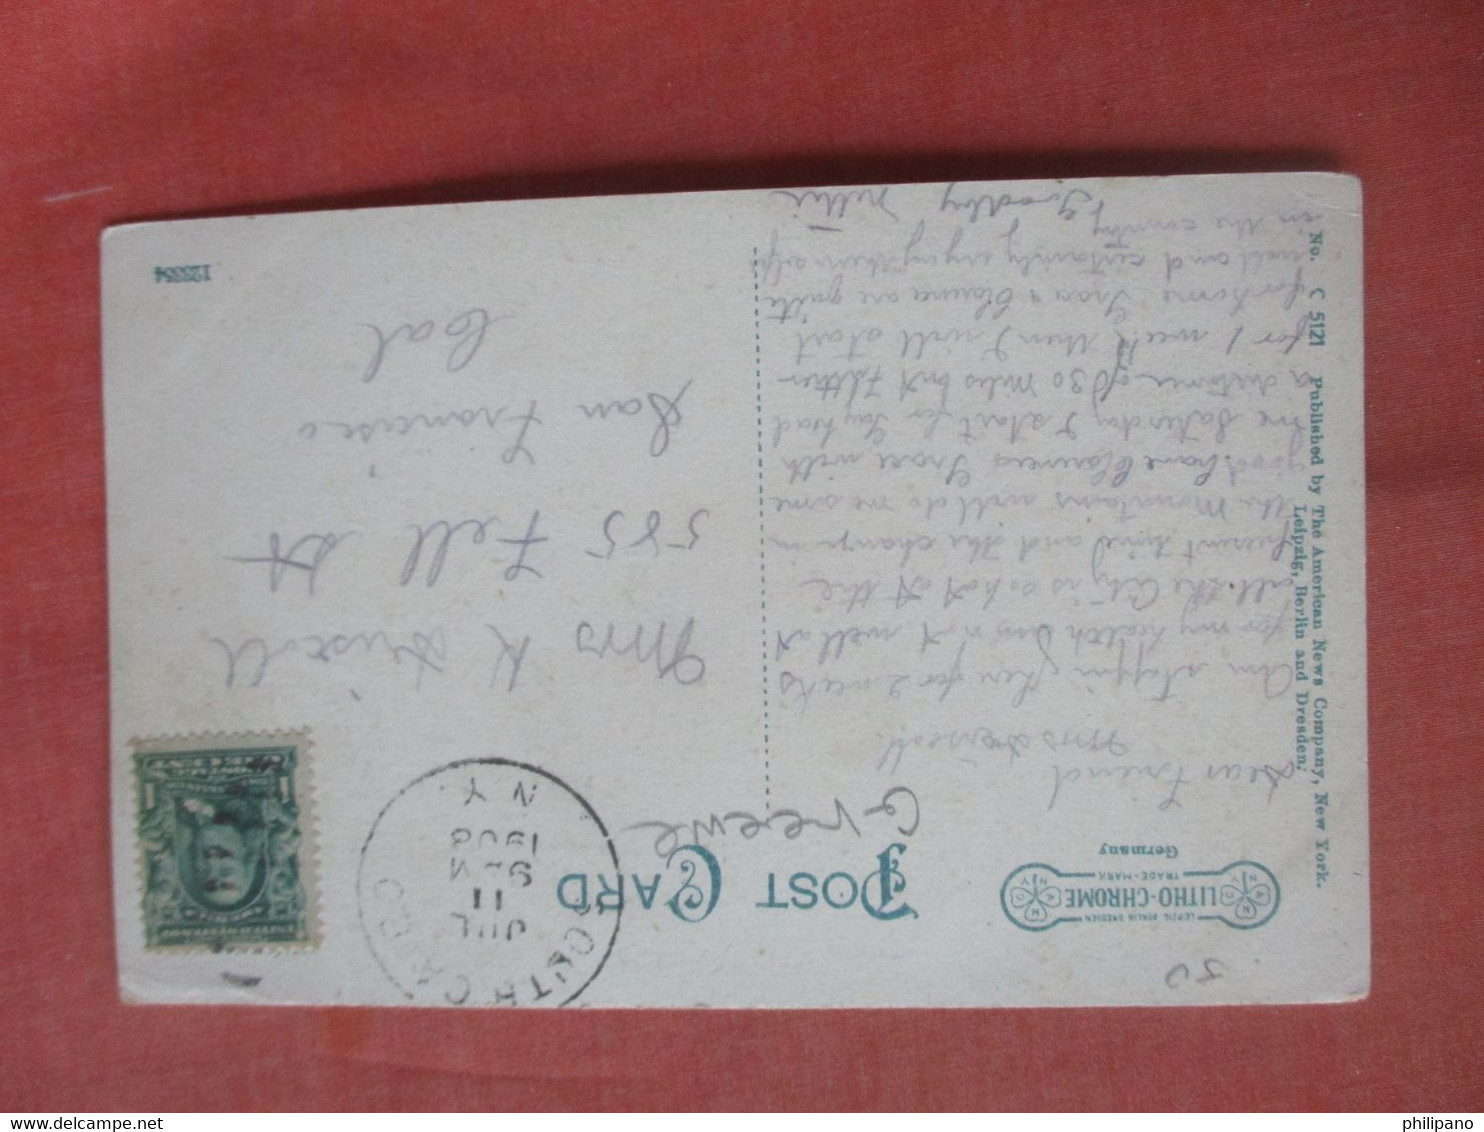 LEIPZIG BERLIN DRESDEN
LITHO-CHROME
TRADE-MARK
N Y
Germany
POST CARD
Greene
SOUTH CAIRO
JUL
11
9 AM
1908
N.Y.
1
1
Dear Friend
Mrs Driscoll
Am stopping here for 2 weeks
for my health Am not well at
all. the City is so hot at the
present time and the change in
the Mountains will do me some
good. have Clarence Grace with
me Saturday I start for
a distance of 30 miles but further
for 1 week then I will start
for home. Grace & Clarence are quite
well and certainly enjoying themself
in the country
Goodby
Nellie
Mrs K Driscoll
585 Fell St
San Francisco
Cal
123354
No. C 5121 Published by The American News Company, New York.
Leipzig, Berlin and Dresden.
50
philipano